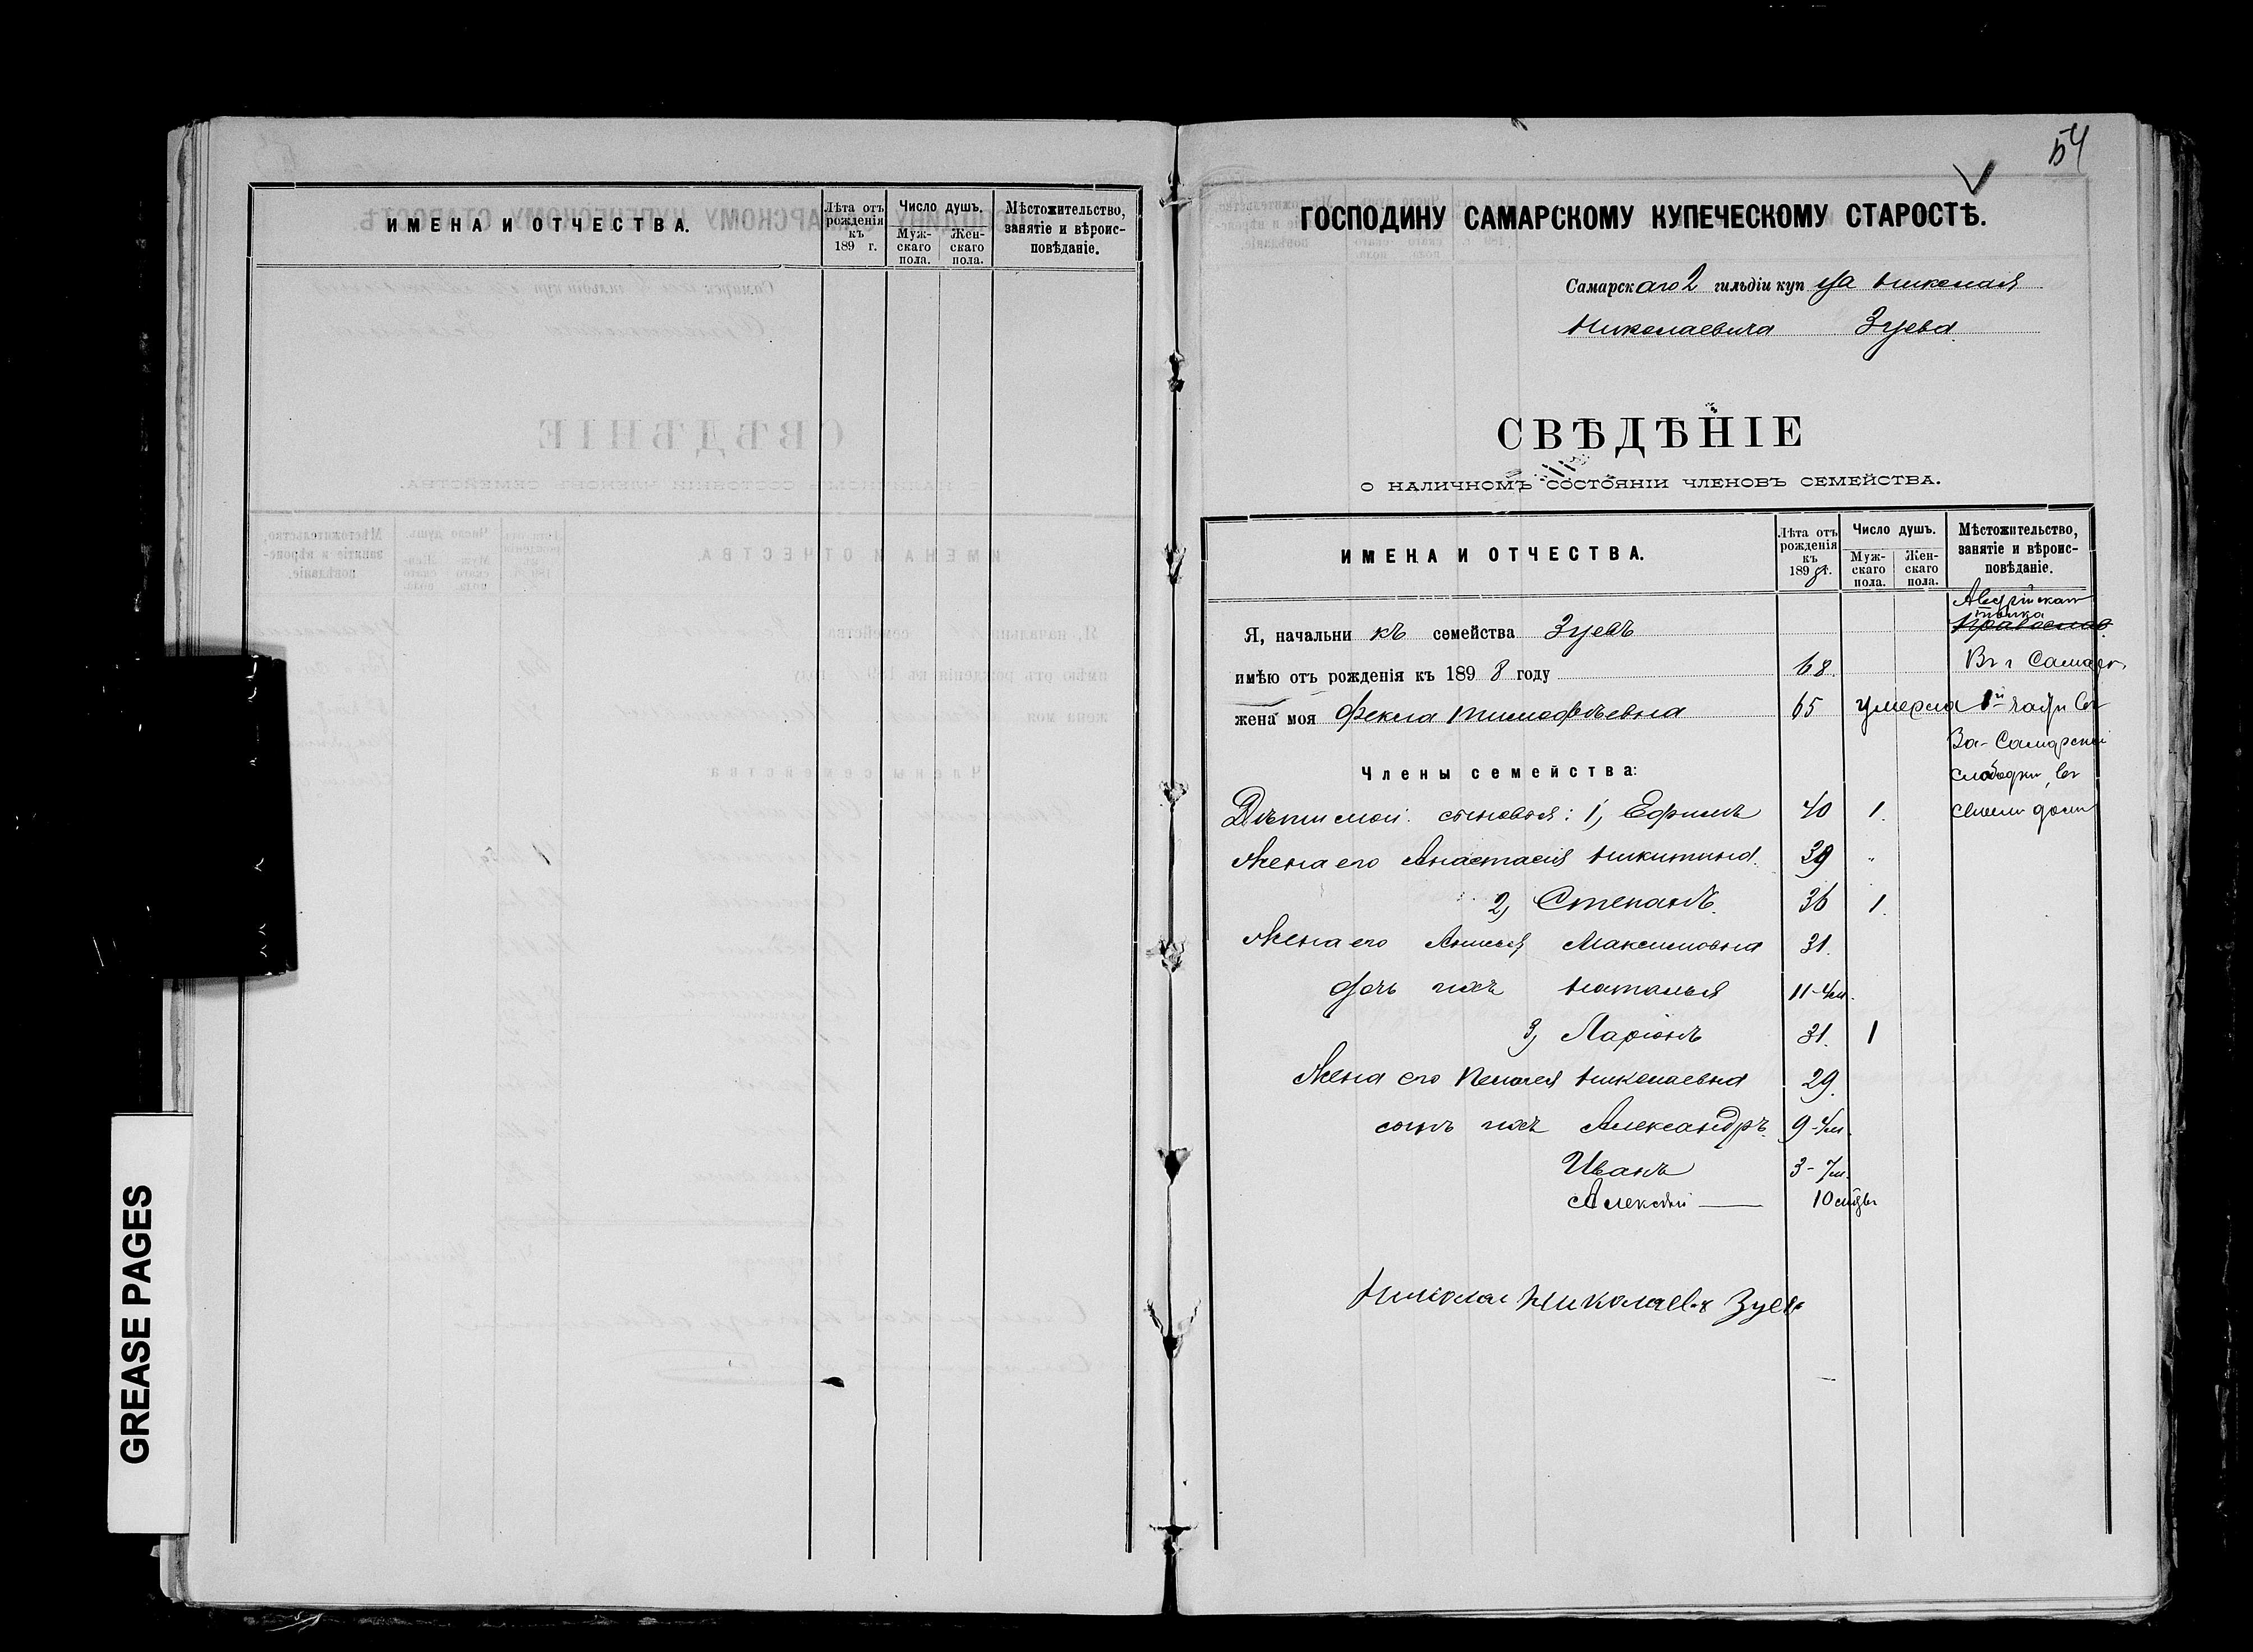 ИМЕНА И ОТЧЕСТВА.
Лѣта отъ рожденія къ 189 г.
Число душъ.
Мужскаго пола.
Женскаго пола.
Мѣстожительство, занятіе и вѣроисповѣданіе.
54
ГОСПОДИНУ САМАРСКОМУ КУПЕЧЕСКОМУ СТАРОСТѢ.
Самарскаго 2 гильдіи купца Николая
Николаевича Зуева
СВѢДѢНІЕ
О НАЛИЧНОМЪ СОСТОЯНІИ ЧЛЕНОВЪ СЕМЕЙСТВА.
ИМЕНА И ОТЧЕСТВА.
Лѣта отъ рожденія къ 1898 г.
Число душъ.
Мужскаго пола.
Женскаго пола.
Мѣстожительство, занятіе и вѣроисповѣданіе.
Православ.
Я, начальникъ семейства Зуевъ
имѣю отъ рожденія къ 1898 году 68. Въ г Самарѣ
жена моя Фекла Тимофѣевна 65 умерла 1й части въ
За-Самарской
Члены семейства: слободки, въ
Дѣти мои: сыновья: 1, Ефимъ 40 1. своем доме
Жена его Анастасія Никитина 39 "
2, Степанъ 36 1.
Жена его Максимовна 31.
дочь ихъ Наталья 11-4м.
3, Ларіонъ 31. 1
Жена его Пелагея Николаевна 29.
сынъ ихъ Александръ 9-4м.
Иванъ 3-7м.
Алексѣй — 10 мѣсЪ
Николай Николаевъ Зуевъ
GREASE PAGES